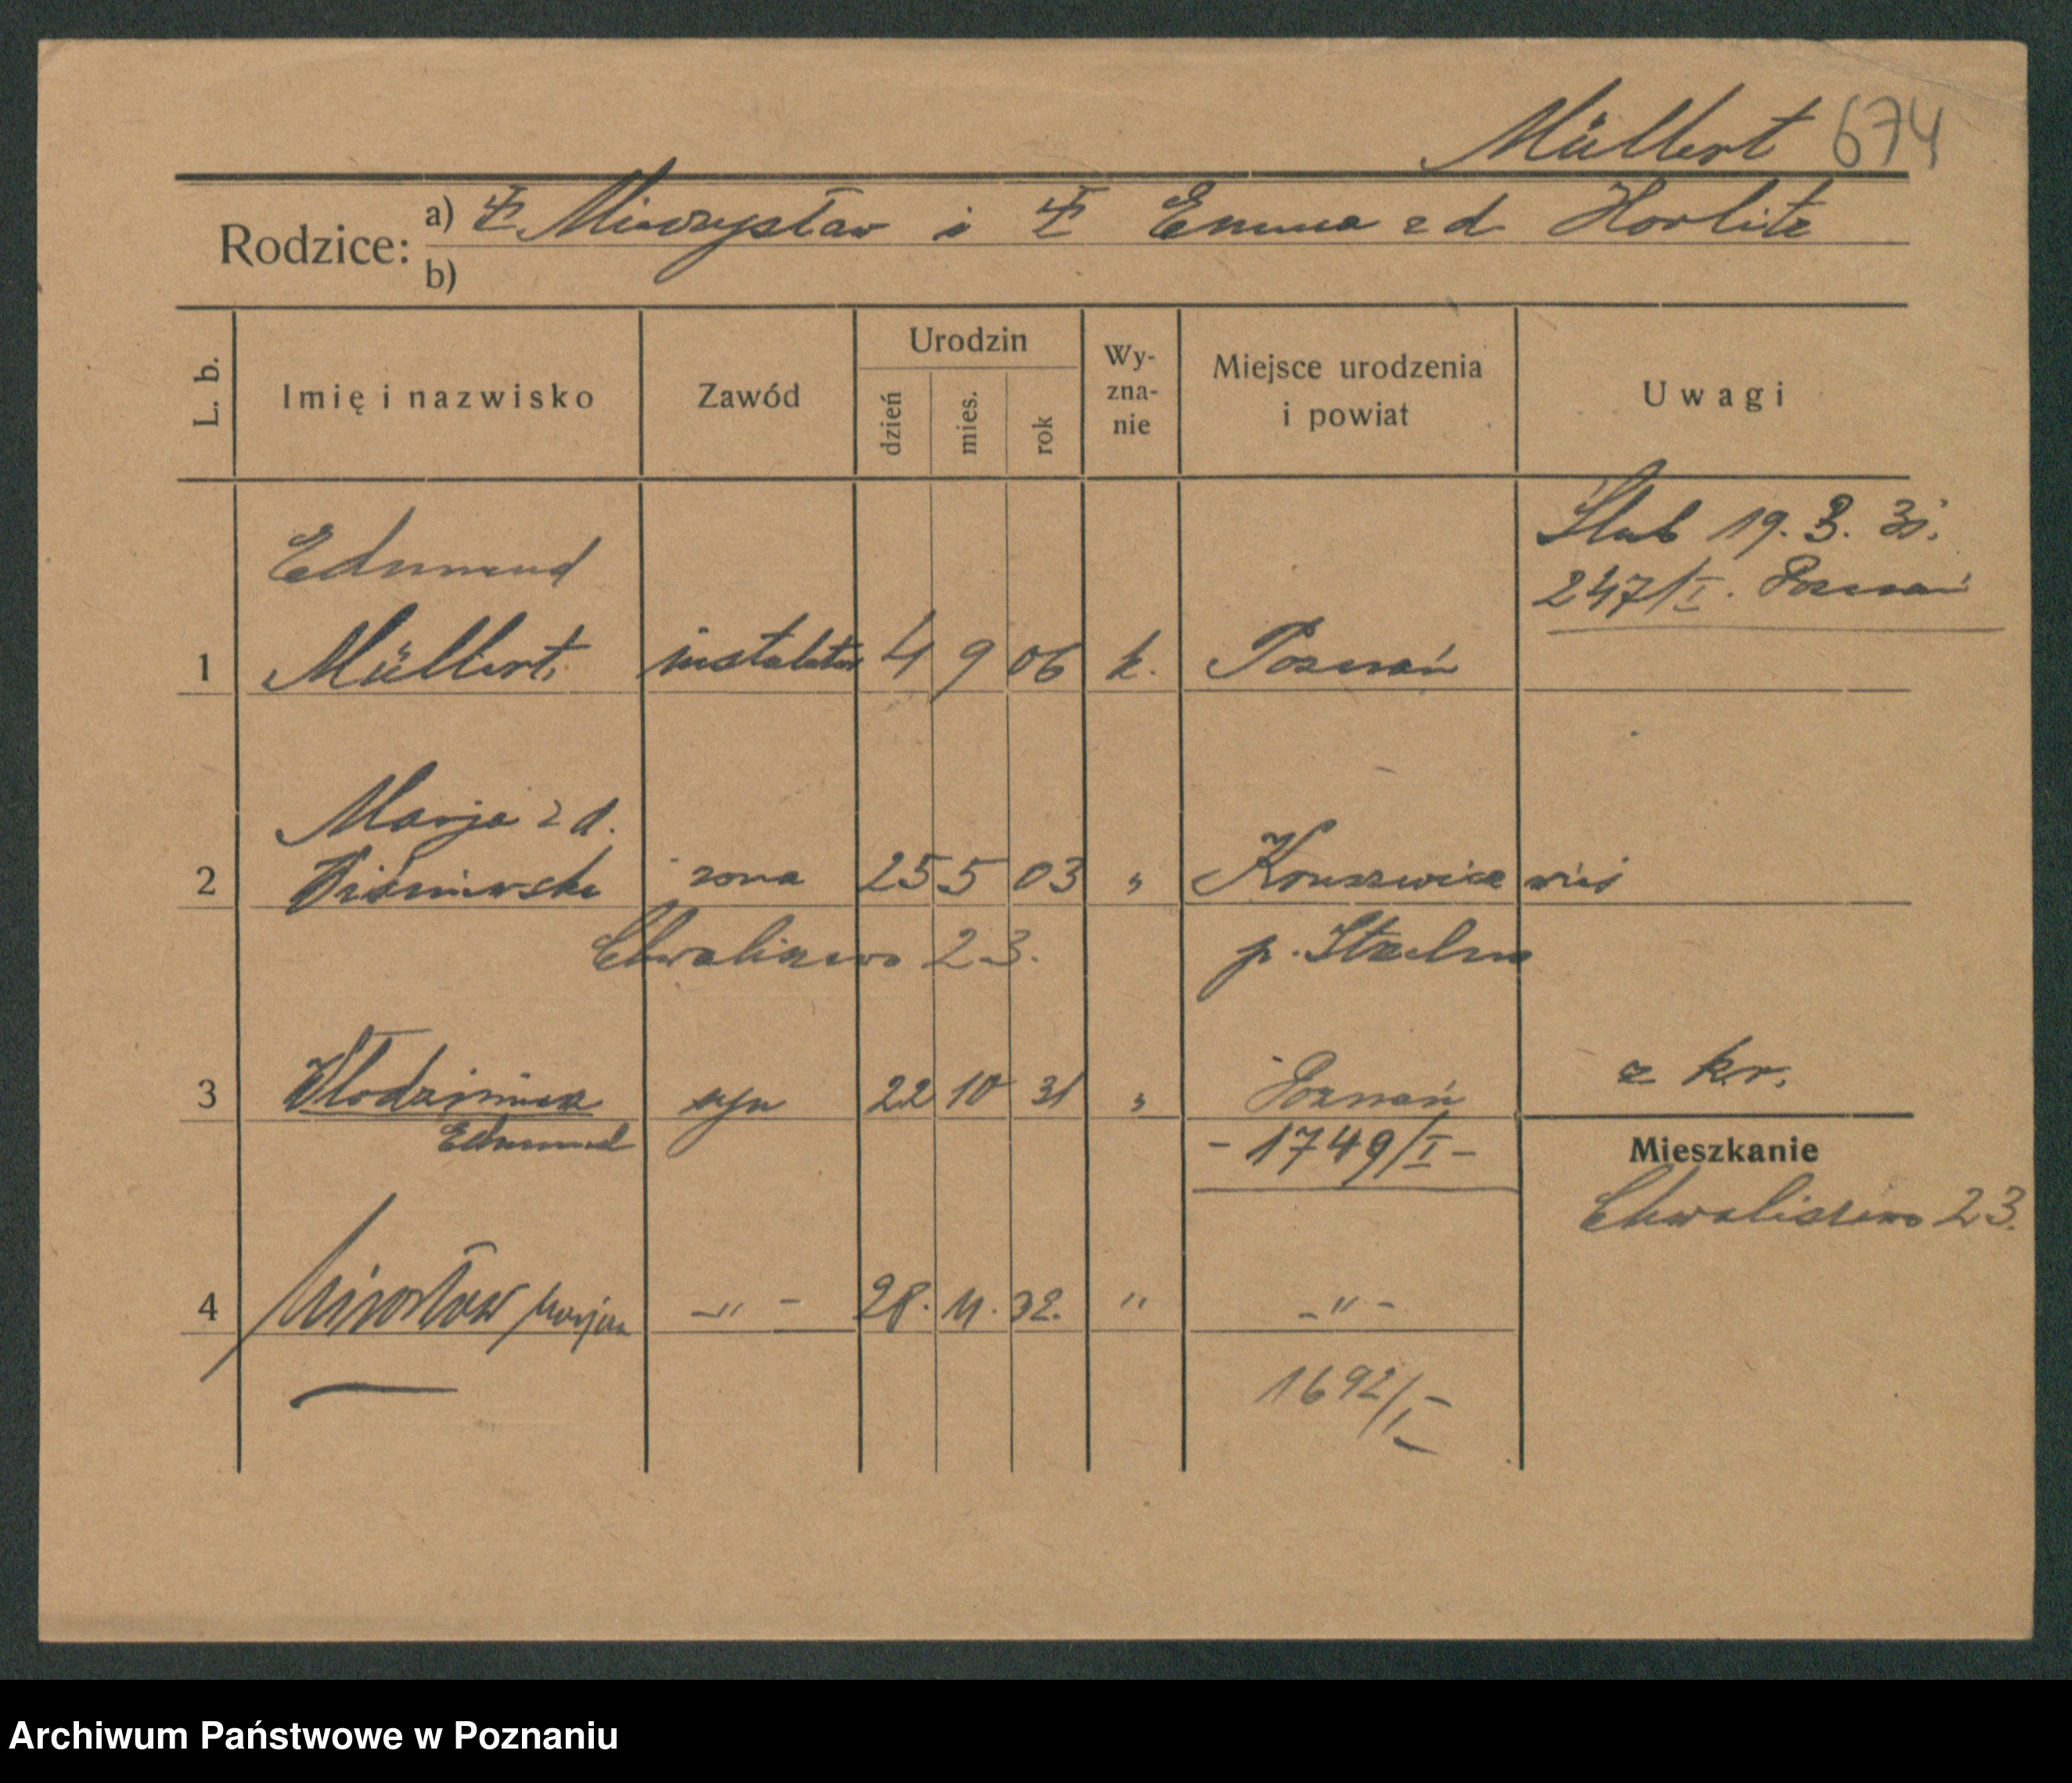 Müllert 674
Rodzice: a) Mieczysław i Emma z d. Horlitz
b)
L. b. Imię i nazwisko Zawód Urodzin dzień mies. rok Wy-zna-nie Miejsce urodzenia i powiat Uwagi
Ślub 19. 3. 31.
247/I. Poznań
Edmund
1 Müllert instalator 4 9 06 k. Poznań
Marja z d.
2 Wiśniewska żona 25 5 03 " Kruszwica wieś
Chwaliszewo 23. p. Strzelno
3 Włodzimierz syn 22 10 31 " Poznań z kr.
Edmund - 1749/I - Mieszkanie
Chwaliszewo 23.
4 Mirosław Marjan -"- 28. 11. 32. " -"-
1692/I
Archiwum Państwowe w Poznaniu